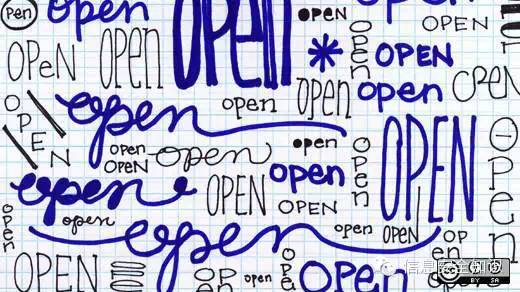 open
open
OPEN
open
OPEN
OPEN
OPEN
open
OPEN
open
OPEN
OPEN
open
open
open
open
OPEN
open
open
OPEN
open
open
OPEN
open
OPEN
open
open
OPEN
OPEN
open
open
open
open
open
OPEN
OPEN
open
open
open
open
BY SA